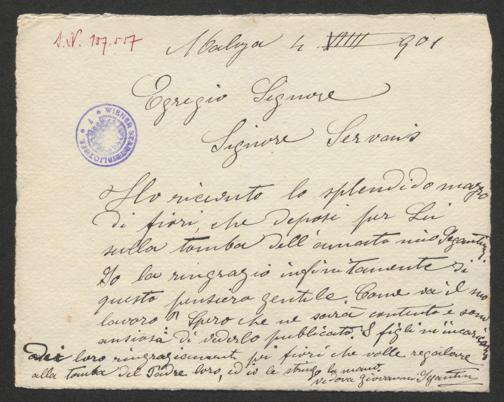 I.N. 197.557
Maloja 4 VIIII 901
Egregio Signore
Signore Servaes
WIENER STADTBIBLIOTHEK
Ho ricevuto lo splendido mazzo
di fiori, che deposi per Lei
sulla tomba dell'amato mio Segantini.
Io la ringrazio infinitamente di
questo pensiero gentile. Come va il suo
lavoro? Spero che ne sarà contento e sono
ansiosa di vederlo publicato. I figli m'incaricano
dei loro ringraziamenti per fiori che volle regalare
alla tomba del Padre loro, ed io le stringo la mano
Vedova Giovanni Segantini